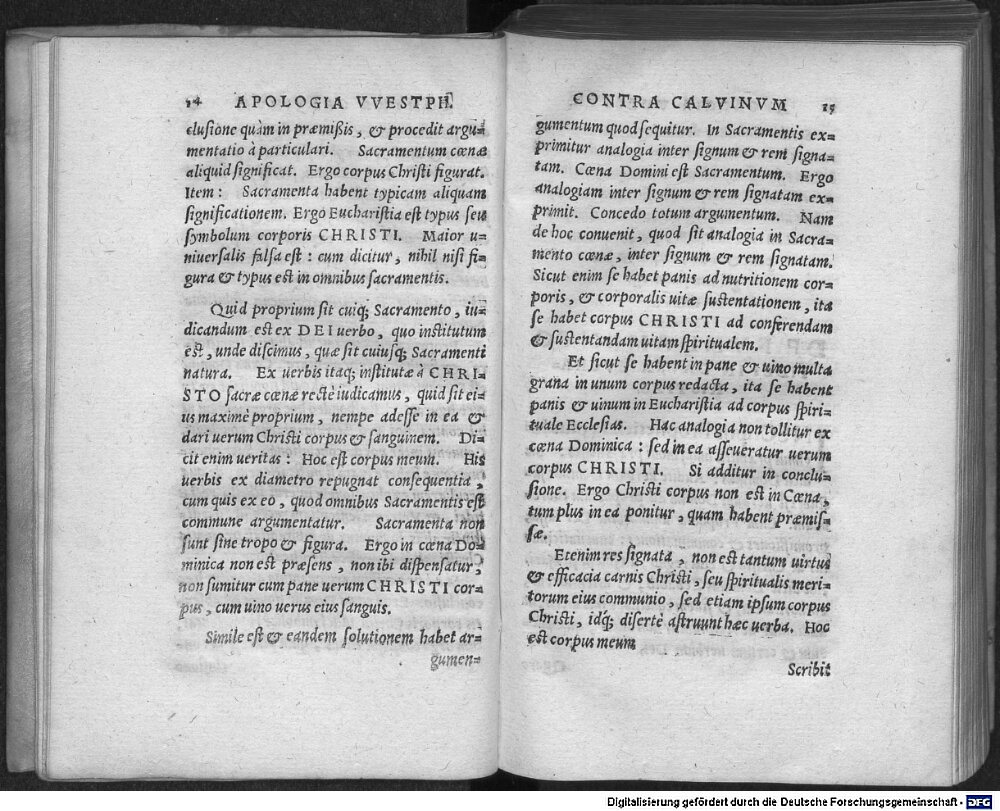 14 APOLOGIA VVESTPH.
clusione quàm in præmißis, & procedit argu=
mentatio à particulari. Sacramentum cœnæ
aliquid significat. Ergo corpus Christi figurat.
Item: Sacramenta habent typicam aliquam
significationem. Ergo Eucharistia est typus seu
symbolum corporis CHRISTI. Maior u=
niuersalis falsa est: cum dicitur, nihil nisi fi=
gura & typus est in omnibus sacramentis.
Quid proprium sit cuiq; Sacramento, iu=
dicandum est ex DEI uerbo, quo institutum
est, unde discimus, quæ sit cuiusq; Sacramenti
natura. Ex uerbis itaq; institutæ à CHRI=
STO sacræ cœnæ rectè iudicamus, quid sit ei=
us maximè proprium, nempe adesse in ea &
dari uerum Christi corpus & sanguinem. Di=
cit enim ueritas: Hoc est corpus meum. His
uerbis ex diametro repugnat consequentia,
cum quis ex eo, quod omnibus Sacramentis est
commune argumentatur. Sacramenta non
sunt sine tropo & figura. Ergo in cœna Do=
minica non est præsens, non ibi dispensatur,
non sumitur cum pane uerum CHRISTI cor=
pus, cum uino uerus eius sanguis.
Simile est & eandem solutionem habet ar=
gumen=
CONTRA CALVINVM 15
gumentum quod sequitur. In Sacramentis ex=
primitur analogia inter signum & rem signa=
tam. Cœna Domini est Sacramentum. Ergo
analogiam inter signum & rem signatam ex=
primit. Concedo totum argumentum. Nam
de hoc conuenit, quod sit analogia in Sacra=
mento cœnæ, inter signum & rem signatam.
Sicut enim se habet panis ad nutritionem cor=
poris, & corporalis uitæ sustentationem, ita
se habet corpus CHRISTI ad conferendam
& sustentandam uitam spiritualem.
Et sicut se habent in pane & uino multa
grana in unum corpus redacta, ita se habent
panis & uinum in Eucharistia ad corpus spiri=
tuale Ecclesiæ. Hac analogia non tollitur ex
cœna Dominica: sed in ea asseueratur uerum
corpus CHRISTI. Si additur in conclu=
sione. Ergo Christi corpus non est in Cœna,
tum plus in ea ponitur, quam habent præmis=
sæ.
Etenim res signata, non est tantum uirtus
& efficacia carnis Christi, seu spiritualis meri=
torum eius communio, sed etiam ipsum corpus
Christi, idq; disertè astruunt hæc uerba. Hoc
est corpus meum
Scribit
Digitalisierung gefördert durch die Deutsche Forschungsgemeinschaft - DFG